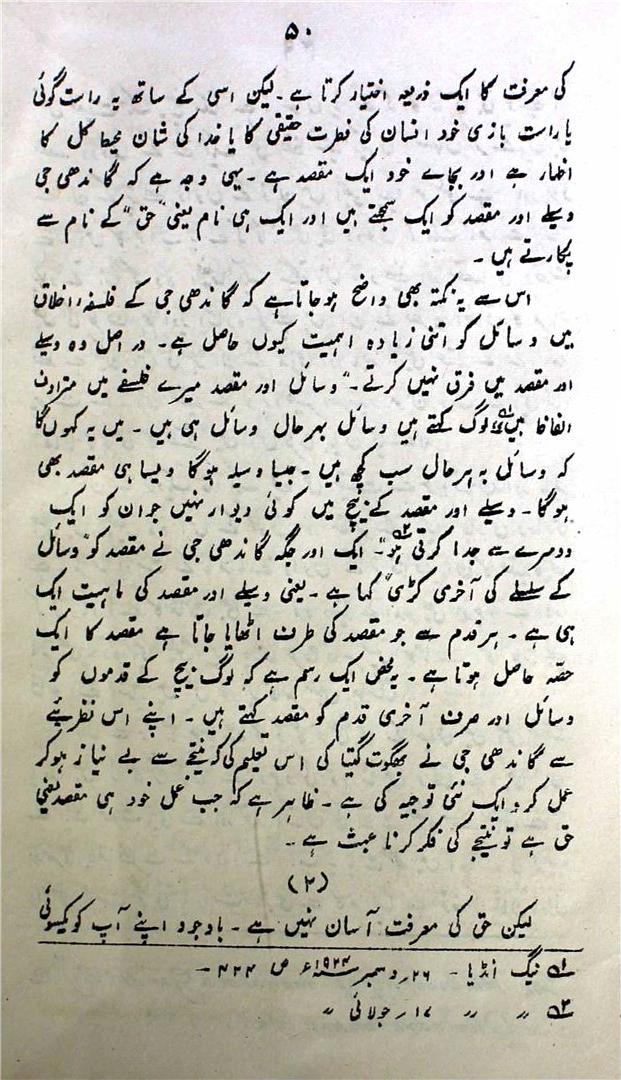 ۵۰
کی معرفت کا ایک ذریعہ اختیار کرتا ہے۔ لیکن اسی کے ساتھ یہ راست گوئی
یا راست بازی خود انسان کی فطرت حقیقی کا یا خدا کی شان محیط کل کا
اظہار ہے اور بجائے خود ایک مقصد ہے۔ یہی وجہ ہے کہ گاندھی جی
وسیلے اور مقصد کو ایک سمجھتے ہیں اور ایک ہی نام یعنی "حق" کے نام سے
پکارتے ہیں۔
اس سے یہ نکتہ بھی واضح ہو جاتا ہے کہ گاندھی جی کے فلسفۂ اخلاق
میں وسائل کو اتنی زیادہ اہمیت کیوں حاصل ہے۔ در اصل وہ وسیلے
اور مقصد میں فرق نہیں کرتے۔ "وسائل اور مقصد میرے فلسفے میں مترادف
الفاظ ہیں"؎۱ لوگ کہتے ہیں وسائل بہرحال وسائل ہی ہیں۔ میں یہ کہوں گا
کہ وسائل بہرحال سب کچھ ہیں۔ جیسا وسیلہ ہوگا ویسا ہی مقصد بھی
ہوگا۔ وسیلے اور مقصد کے بیچ میں کوئی دیوار نہیں جو ان کو ایک
دوسرے سے جدا کرتی ہو"۔؎۲ ایک اور جگہ گاندھی جی نے مقصد کو "وسائل
کے سلسلے کی آخری کڑی" کہا ہے۔ یعنی وسیلے اور مقصد کی ماہیت ایک
ہی ہے۔ ہر قدم سے جو مقصد کی طرف اٹھایا جاتا ہے مقصد کا ایک
حصّہ حاصل ہوتا ہے۔ یہ محض ایک رسم ہے کہ لوگ بیچ کے قدموں کو
وسائل اور صرف آخری قدم کو مقصد کہتے ہیں۔ اپنے اس نظریئے
سے گاندھی جی نے بھگوت گیتا کی اس تعلیم کی کہ نتیجے سے بے نیاز ہو کر
عمل کرو ایک نئی توجیہ کی ہے۔ ظاہر ہے کہ جب عمل خود ہی مقصد یعنی
حق ہے تو نتیجے کی فکر کرنا عبث ہے۔
(۲)
لیکن حق کی معرفت آسان نہیں ہے۔ باوجود اپنے آپ کو یکسوئی
؎۱ ینگ انڈیا۔ ۲۶ر دسمبر ۱۹۲۴ء ص ۴۲۴۔
؎۲ " " ۱۷ر جولائی "